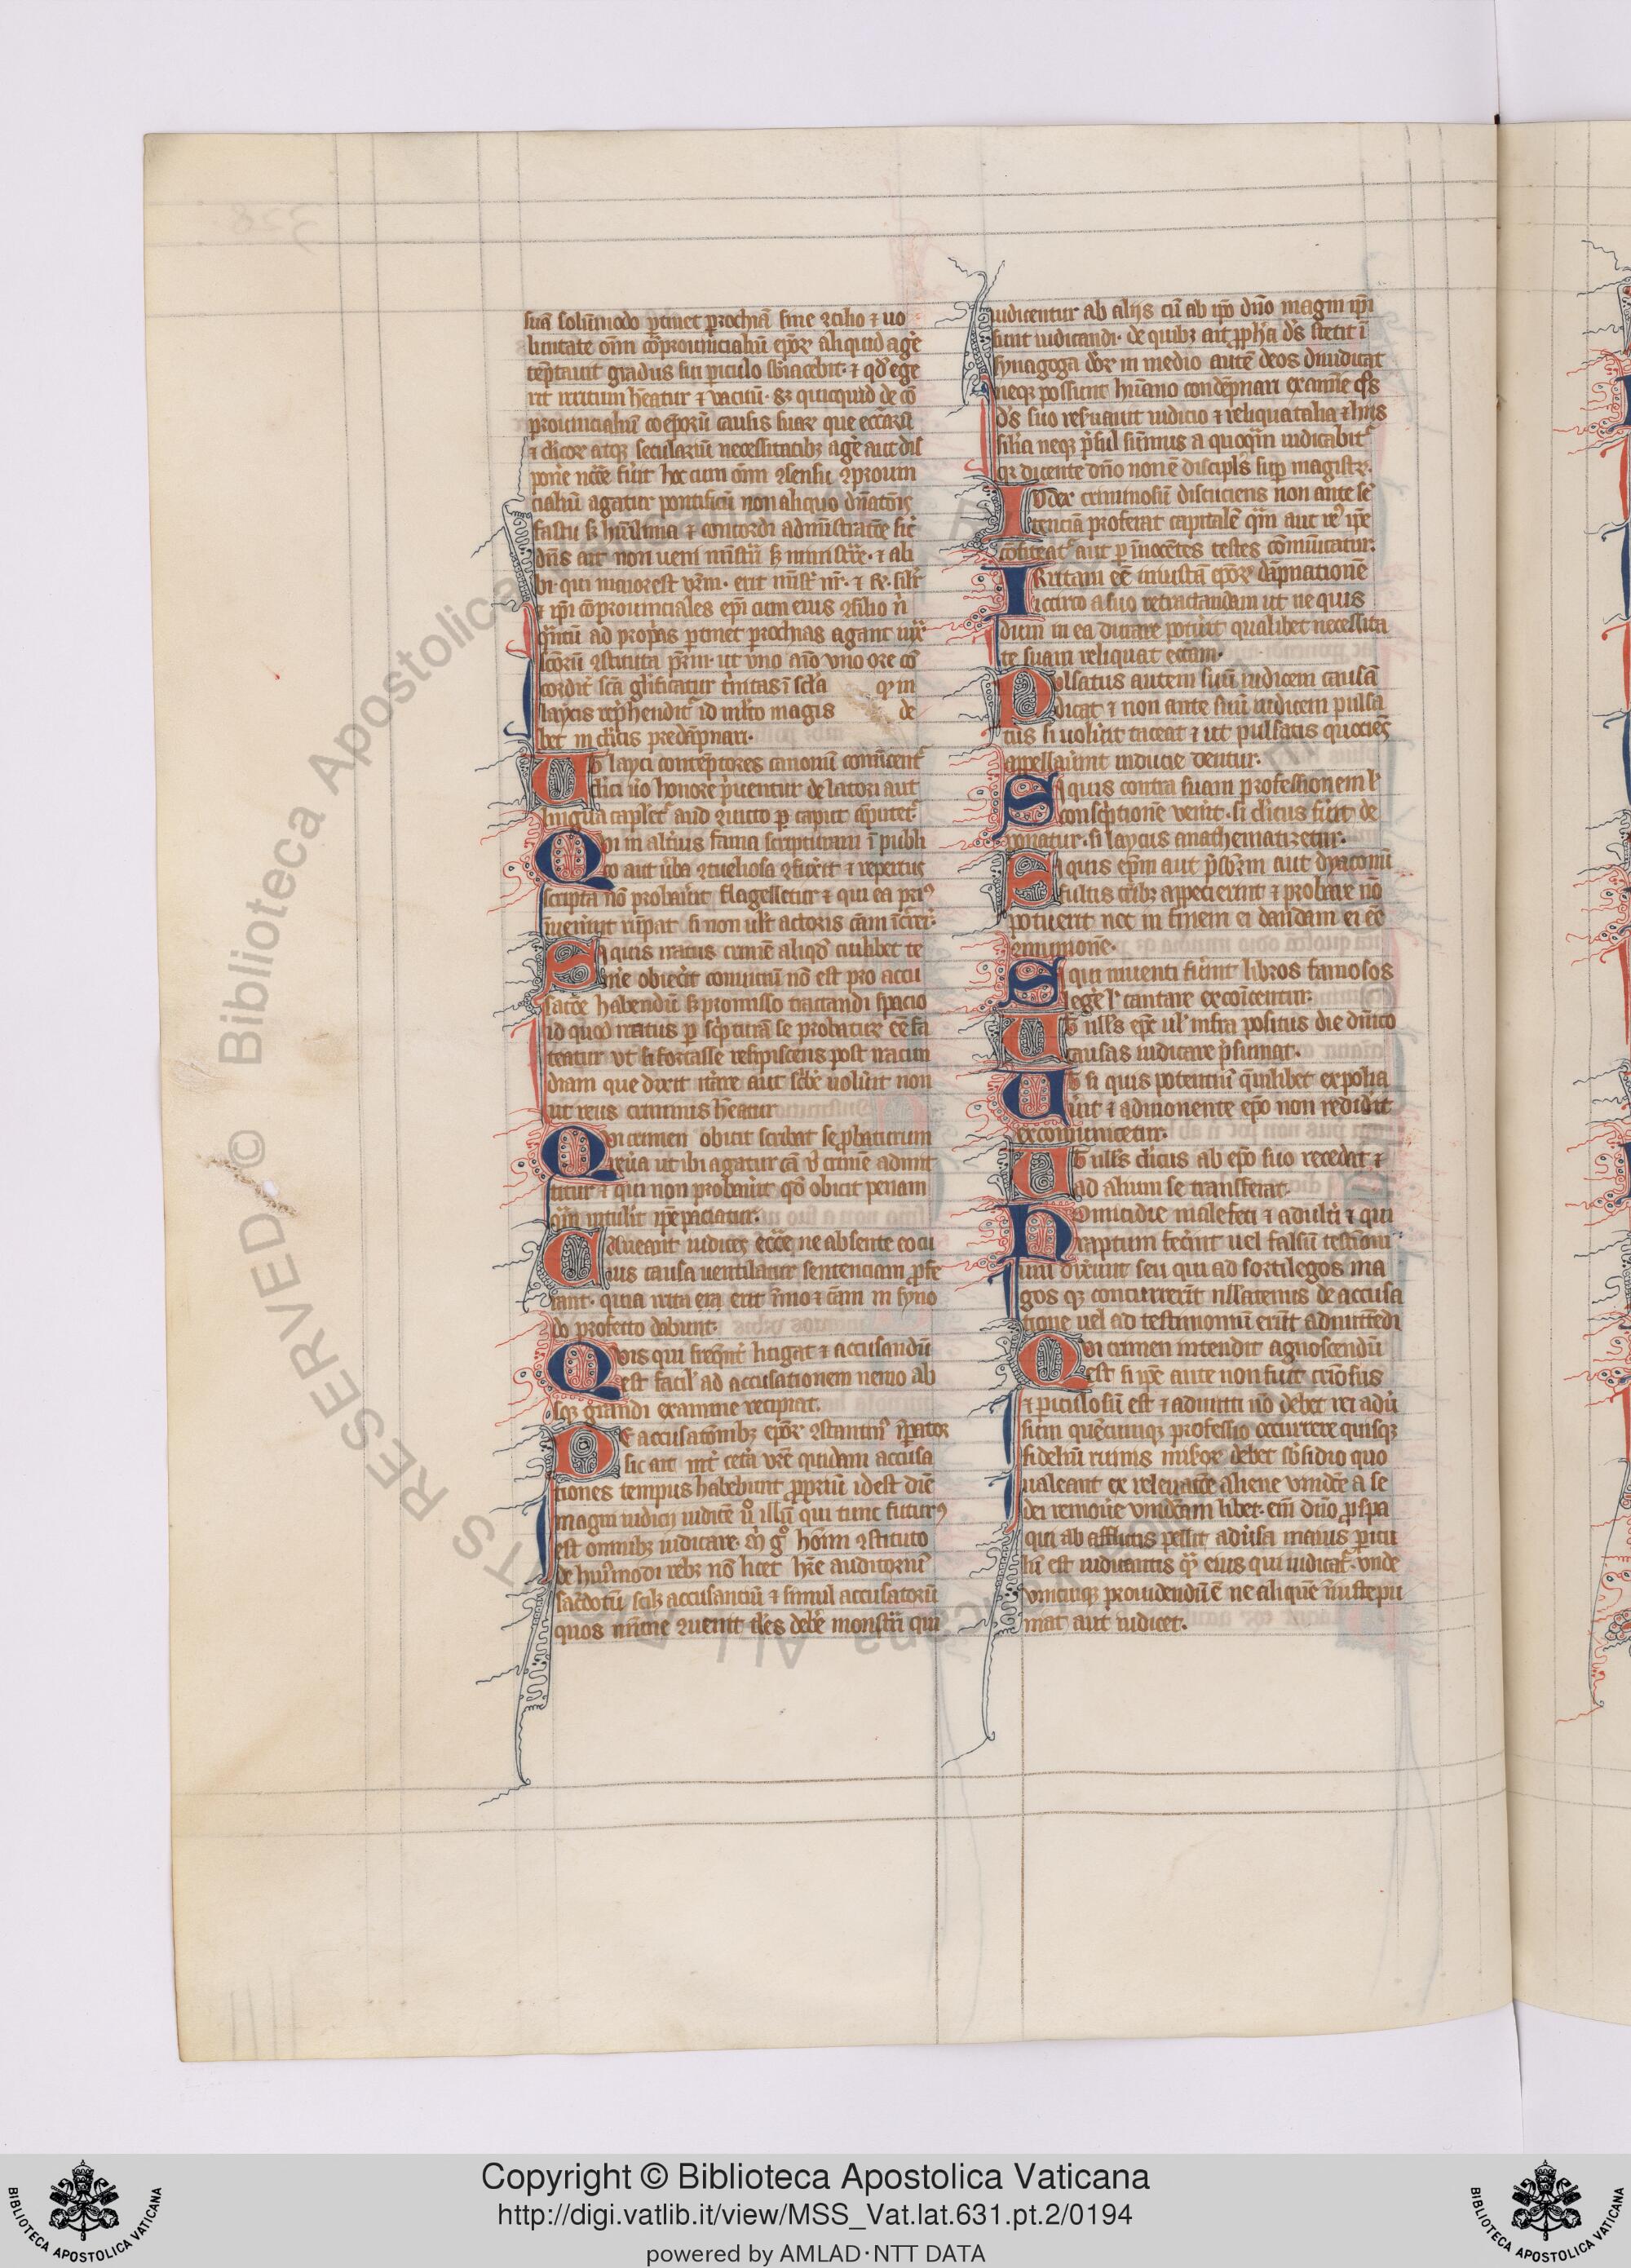 suā solūmodo ꝑtinet ꝑrochiā sine ꝯcilio ⁊ uo
lūtate oīm cōprouincialiū ep̄oꝝ aliquid ag̾e
tēptauit gradus sui ꝑiculo sbiacebit · ⁊ qd̾ ege
rit irritum h̄eatur ⁊ vacuū · Sꝫ quicquid de cō
prouincialiū coep̄oꝝū causis suaꝝ que eccl̄iarū
⁊ cl̾icoꝝ atqꝫ seculariū necessitatibꝫ ag̾e aut dis
pon̾e ncc̄e fu̾it hoc cum oīm ꝯsensu ꝯprouin
cialiū agatur pontificū non aliquo dn̄atōis
fastu sꝫ hūillima ⁊ concordi administratōe sic̄
dn̄s ait non ueni mīstrari sꝫ ministrare · ⁊ ali
bi qui maior est vr̄m · erit mīst̾ ur̄ · ⁊ ⁊c̄ · sil̾r
⁊ ip̄i cōprouinciales ep̄i cum eius ꝯsilio n̄
q̄ntū ad prop̾as ꝑtinet ꝑrochias agant iux̾
sc̄oꝝū ꝯstituta pr̄m · ut vno aīo vno ore cō
cordit̾ sc̄a gl̾ificatur t̾nitas ī sc̄l̾a qꝫ in
laycis rep̾hendit̾ id ml̾to magis de
bet in cl̾icis predāpnari ·
Ut layci conteptores canonū com̄icent̾
cl̾ici u̾o honore p̾uentur delatori aut
lingua caplet̾ aud ꝯuicto ꝑ caput āputet̾ ·
Qui in alt̾ius fama scripturam ī publi
co aut u̾ba ꝯtueliosa ꝯfix̾it ⁊ repertus
scripta nō probau̾it flagelletur ⁊ qui ea pri⁹
iuenerit rūpat si non ult̾ actoris cām īcr̾er̾ ·
Si quis iratus crimē aliqd̾ cuilibet te
m̾e obiec̾it conuiciū nō est pro accu
satōe habendū sꝫ ꝑmisso tractandi spacio
id quod iratus ꝑ sc̾pturā se probaturꝫ ee̅ fa
teatur vt si fortasse resipiscens post iracun
diam que dixit it̾are aut sc̾ibe uolu̾it non
ut reus criminis h̄eatur
Qui crimen obicit scribat se ꝓbaturum
reu̾a ut ibi agatur cā u̾ crimē admit
titur ⁊ qui non probau̾it qd̾ obicit penam
q̄m intulit ip̄e paciatur ·
Caueant iudices ecc̄e ne absente eo cu
ius causa uentilatur sentenciam ꝓfe
rant · quia irrita erit īmo ⁊ cām in syno
do pro facto dabunt ·
Quis qui freq̄nt̾ litigat ⁊ accusandū
est facil̾ ad accusationem nemo ab
sqꝫ grandi examine recipiat ·
De accusatōibꝫ ep̄oꝝ ꝯstantin⁹ īꝑator
sic ait int̾ cet̾a vr̄e quidam accusa
tiones tempus habebunt ꝓpriū id est diē
magni iudicij iudicē u̾o illū qui tunc futurꝯ
est omnibꝫ iudicare · m̾ g̊ homī ꝯstituto
de hui⁹modi rebꝫ nō licet h̄re auditorium
sac̾dotū scilꝫ accusanciū ⁊ simul accusatorū
quos mīme ꝯuenit t̄les deb̾e monstri qui
iudicentur ab alijs cū ab ip̄o dn̄o magni ip̄i
sunt iudicandi · de quibꝫ ait ꝓph̄a ds̄ stetit ī
synagoga deoꝝ in medio autē deos diiudicat
neqꝫ possunt hūano condēpnari examine q̄s
ds̄ suo res̾uauit iudicio ⁊ reliqua talia ⁊ hijs
silia neqꝫ p̾sul sūmus a quoq̄m iudicabit̾
qꝫ dicente dn̄o non ē discipl̾s suꝑ magistꝝ ·
Iudex criminosū discuciens non ante se
tenciā proferat capitalē q̄m aut re⁹ ip̄e
cōfiteat̾ aut ꝑ īnocētes testes cōmūicatur ·
Irritam ee̅ iniustā ep̄oꝝ dāpnationē
iccirco a suo retractandam ut ne quis
dum in ea durare potu̾it qualibet necessita
te suam reliquat eccl̄am ·
Pulsatus autem suū iudicem causā
dicat ⁊ non ante suū iudicem pulsa
tus si uolu̾it taceat ⁊ ut pulsatis quociēs
appellau̾int inducie dentur ·
Si quis contra suam professionem ul̾
conscriptionē uen̾it · si cl̾icus fu̾it de
ponatur · si laycus anathematizetur ·
Si quis ep̄m aut p̾sbr̄m aut dyaconū
fultis crībꝫ appecierint ⁊ probare nō
potuerit nec in finem ei dandam ei ee̅
ꝯmunionē ·
Si qui inuenti fu̾int libros famosos
leg̾e ul̾ cantare excōicentur ·
Ut ulls̄ ep̄e ul̾ infra positus die dn̄ico
causas iudicare p̾sumat ·
Ut si quis potentū q̄milibet expolia
u̾it ⁊ admonente ep̄o non reddidit
excommunicetur ·
Ut ulls̄ cl̾icus ab ep̄o suo recedat ⁊
ad alium se transferat ·
Homicide malefici ⁊ adult̾i ⁊ qui
raptum fec̾int uel falsū testīoni
um dix̾int seu qui ad sortilegos ma
gos qꝫ concurrerīt nllatenus de accusa
tione uel ad testimoniū erīt admittēdi
Qui crimen intendit agnoscendū
est si ip̄e ante non fuit cr̾iōsus
⁊ ꝑiculosū est ⁊ admitti nō debet rei adu̾
sum quēcumqꝫ professio occurrere quisqꝫ
fideliū ruinis miseroꝝ debet sb̾sidio quo
ualeant ex releuatōe aliene vindcē a se
dei remou̾e vindictam libet · eni dn̄o ꝓspa
qui ab afflictis pellit adu̾sa maius ꝑicu
lū est iudicantis q̄m eius qui iudicat̾ · vnde
vnicuiqꝫ prouidendū ē ne aliquē iniuste pu
niat aut iudicet ·
Copyright © Biblioteca Apostolica Vaticana
http://digi.vatlib.it/view/MSS_Vat.lat.631.pt.2/0194
powered by AMLAD·NTT DATA